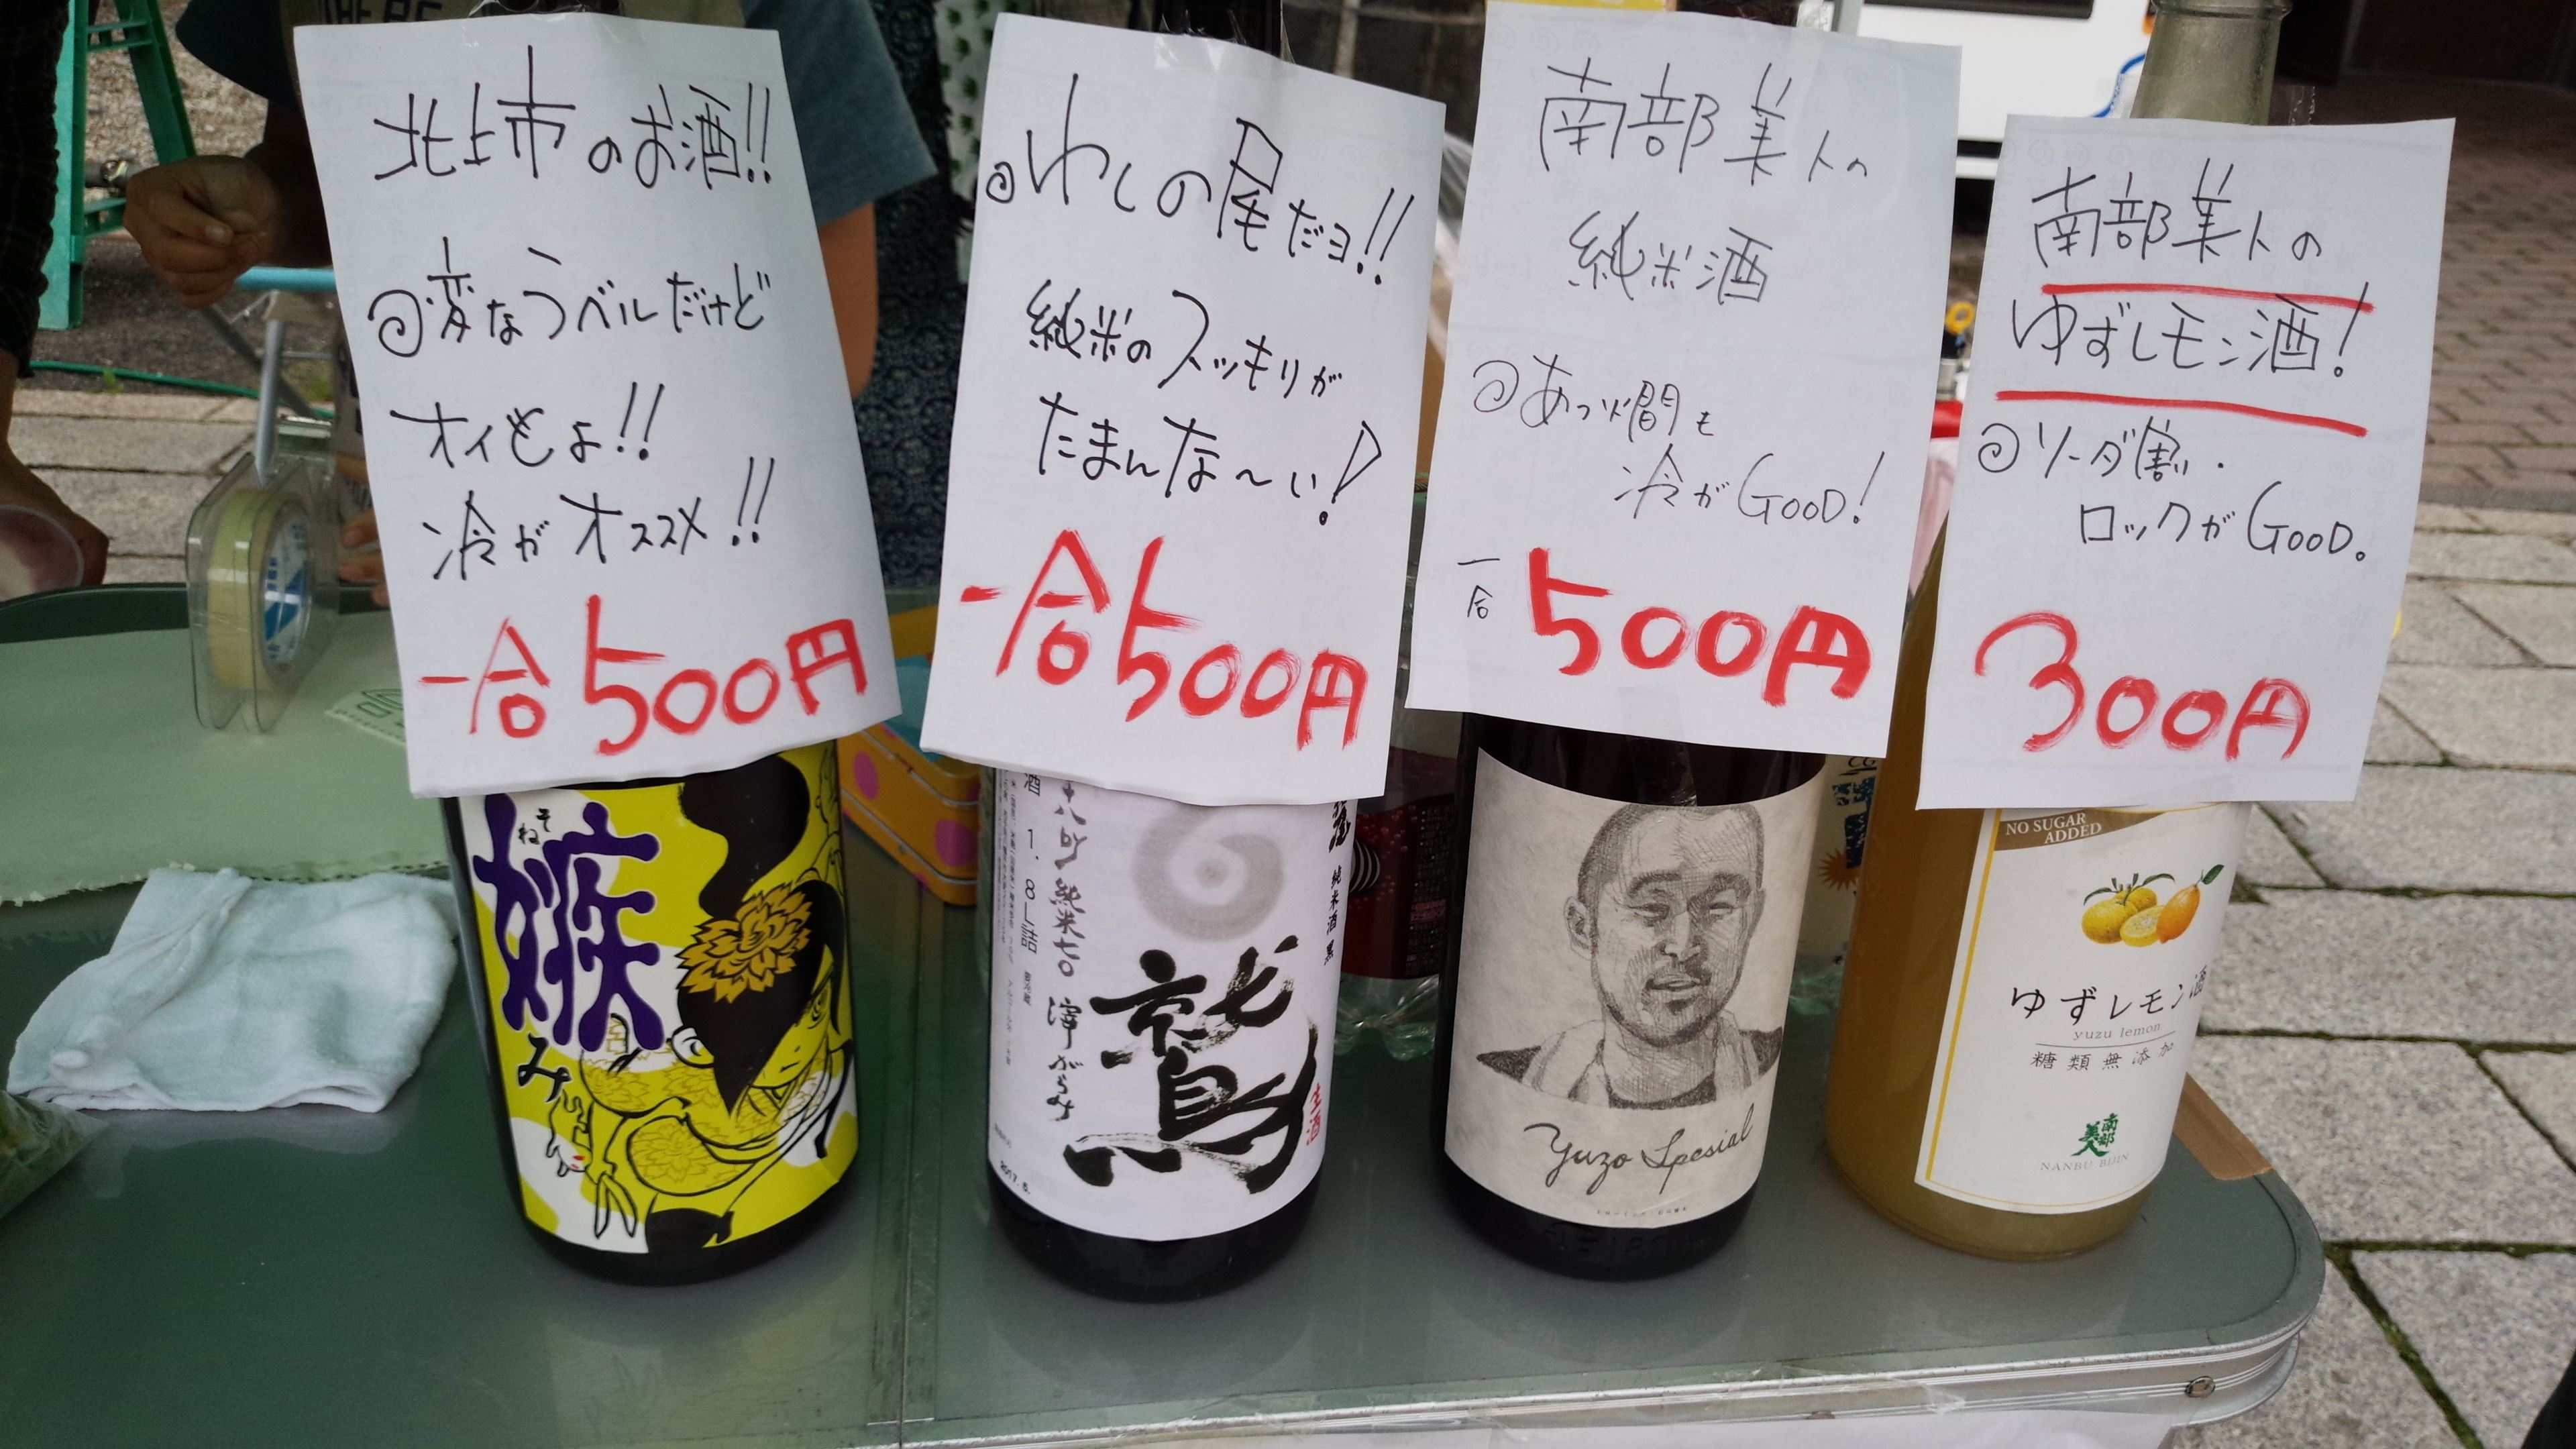 北上市のお酒!!
@変なラベルだけど
オイひよ!!
冷がオススメ!!
一合500円
嫉み
そね
@わしの尾だヨ!!
純米のスッキリが
たまんな〜い!
一合500円
酒 1.8L詰
純米七〇 澤がらみ
純米酒
鷲
生酒
2017.6.
南部美人の
純米酒
@あつ燗も
冷がGOOD!
一合 500円
Yuzo Spesial
南部美人の
ゆずレモン酒!
@ソーダ割・
ロックがGOOD。
300円
NO SUGAR
ADDED
ゆずレモン酒
yuzu lemon
糖類無添加
南部美人
NANBU BIJIN